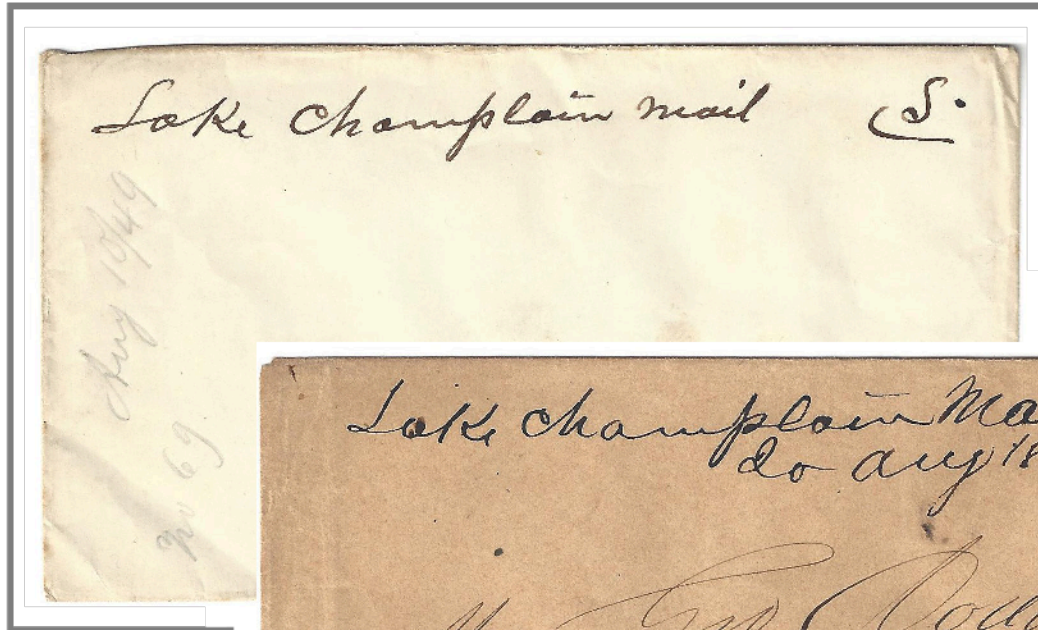 Lake Champlain Mail 5.
Aug 19/49
no 69
Lake Champlain Ma
20 Aug 18